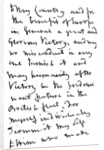 & My Country and for
the benefit of Europe
in General a great and
Glorious Victory, and may
no misconduct in any
one tarnish it and
May humanity after
Victory be the predomi-
nant feature in the
British fleet, For
myself individually
I commit my life
to Him who made